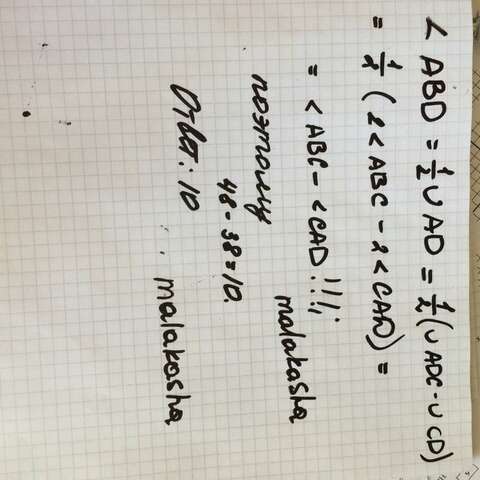 < ABD = 1/2 ∪ AD = 1/2 (∪ ADC - ∪ CD)
= 1/2 ( 2 < ABC - 2 < CAD) =
= < ABC - < CAD !!!¡
malakasha
поэтому
48 - 38 = 10.
Ответ: 10
. malakasha